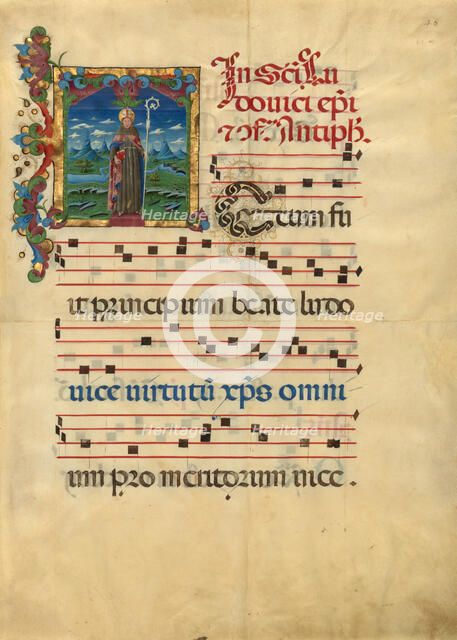 In Sc̄i Lu
douici ep̄i
⁊ ꝯf. Antiph.
Tecum fu
it principium beate ludo
uice uirtutū xp̄s omni
um pro meritorum uice.
Heritage
Heritage
Heritage
Heritage
Heritage
Heritage
Heritage